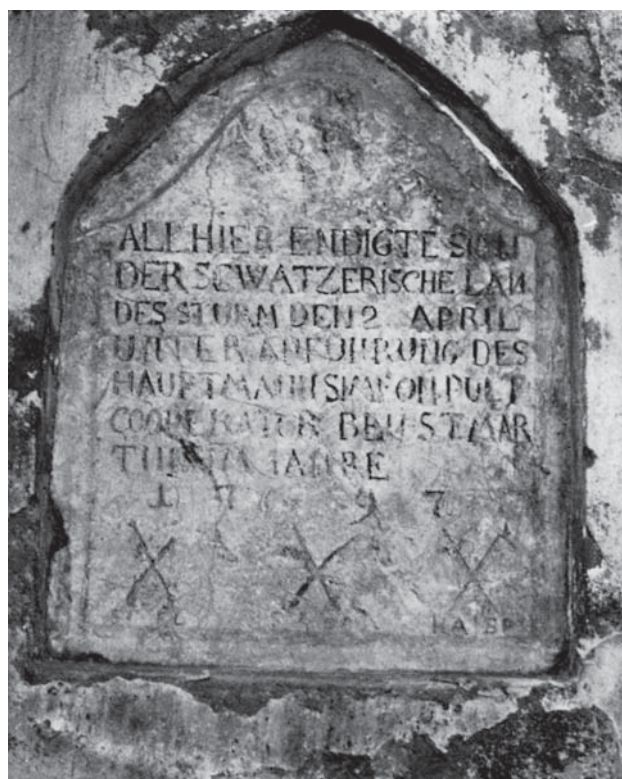 ALLHIER ENDIGTE SICH
DER SCWATZERISCHE LAN
DES STURM DEN 2 APRIL
UNTER ANFÜHRUNG DES
HAUPTMANN SIMFON PULT
COOPERATER BEN ST MAR
THIN IM JAHRE
1 7 9 7